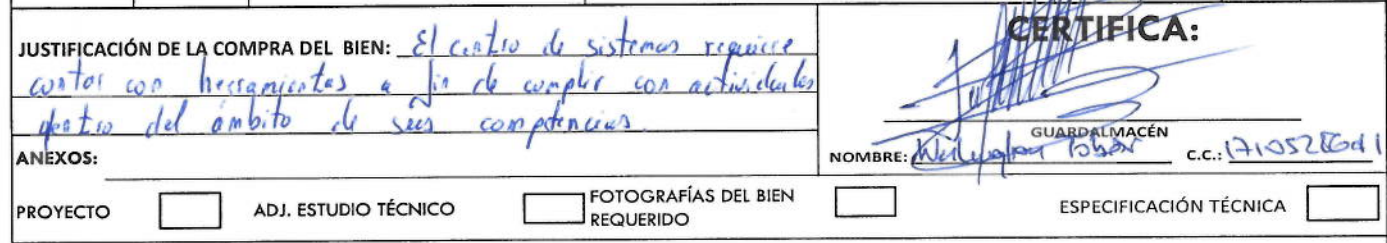 JUSTIFICACIÓN DE LA COMPRA DEL BIEN: El centro de sistemas requiere
contar con herramientas a fin de cumplir con actividades
dentro del ámbito de sus competencias
ANEXOS:
CERTIFICA:
GUARDALMACÉN
NOMBRE: Tobar C.C.:
PROYECTO ADJ. ESTUDIO TÉCNICO FOTOGRAFÍAS DEL BIEN
REQUERIDO ESPECIFICACIÓN TÉCNICA